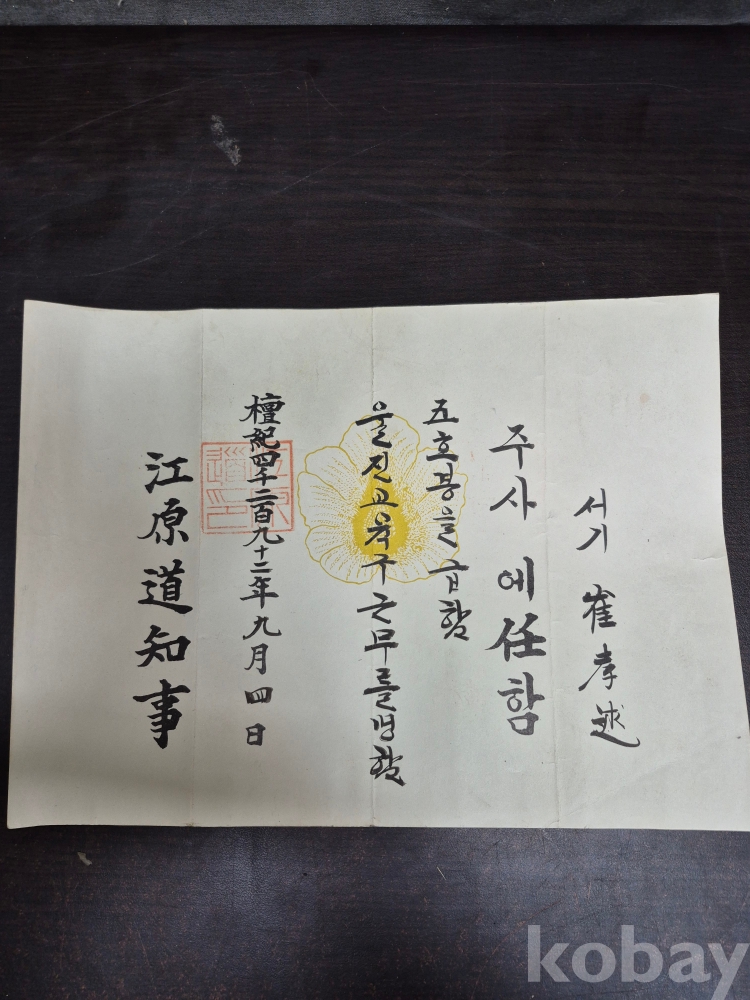 서기 崔孝述
주사에任함
五호봉을 급함
울진교육구근무를명함
檀紀四千二百九十二年九月四日
江原道知事
kobay